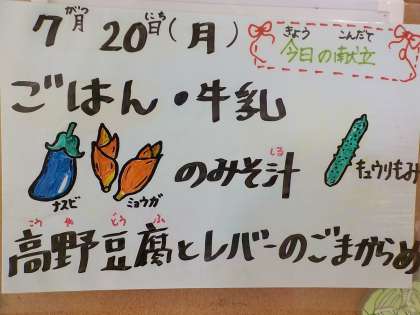 7月20日(月)
がつ にち
きょう こんだて
今日の献立
ごはん・牛乳
ナスビ ミョウガ
のみそ汁
しる
キュウリもみ
こう や どう ふ
高野豆腐とレバーのごまからめ